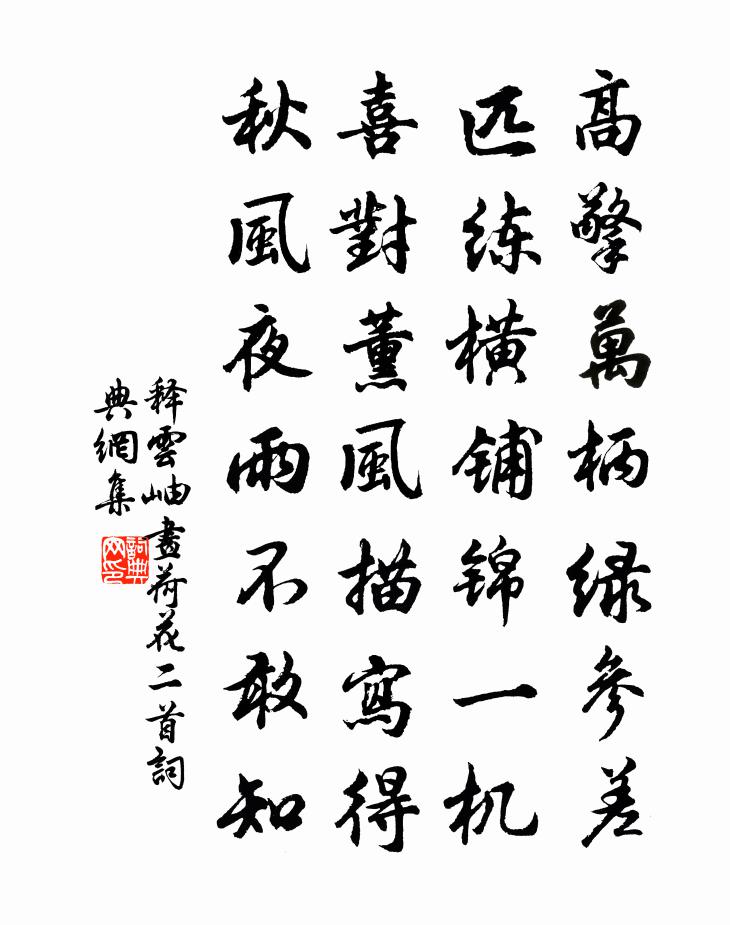 高擎萬柄绿參差
匹练橫铺锦一机
喜對薰風描寫得
秋風夜雨不敢知
释雲岫畫荷花二首詞
典網集
詞典网印